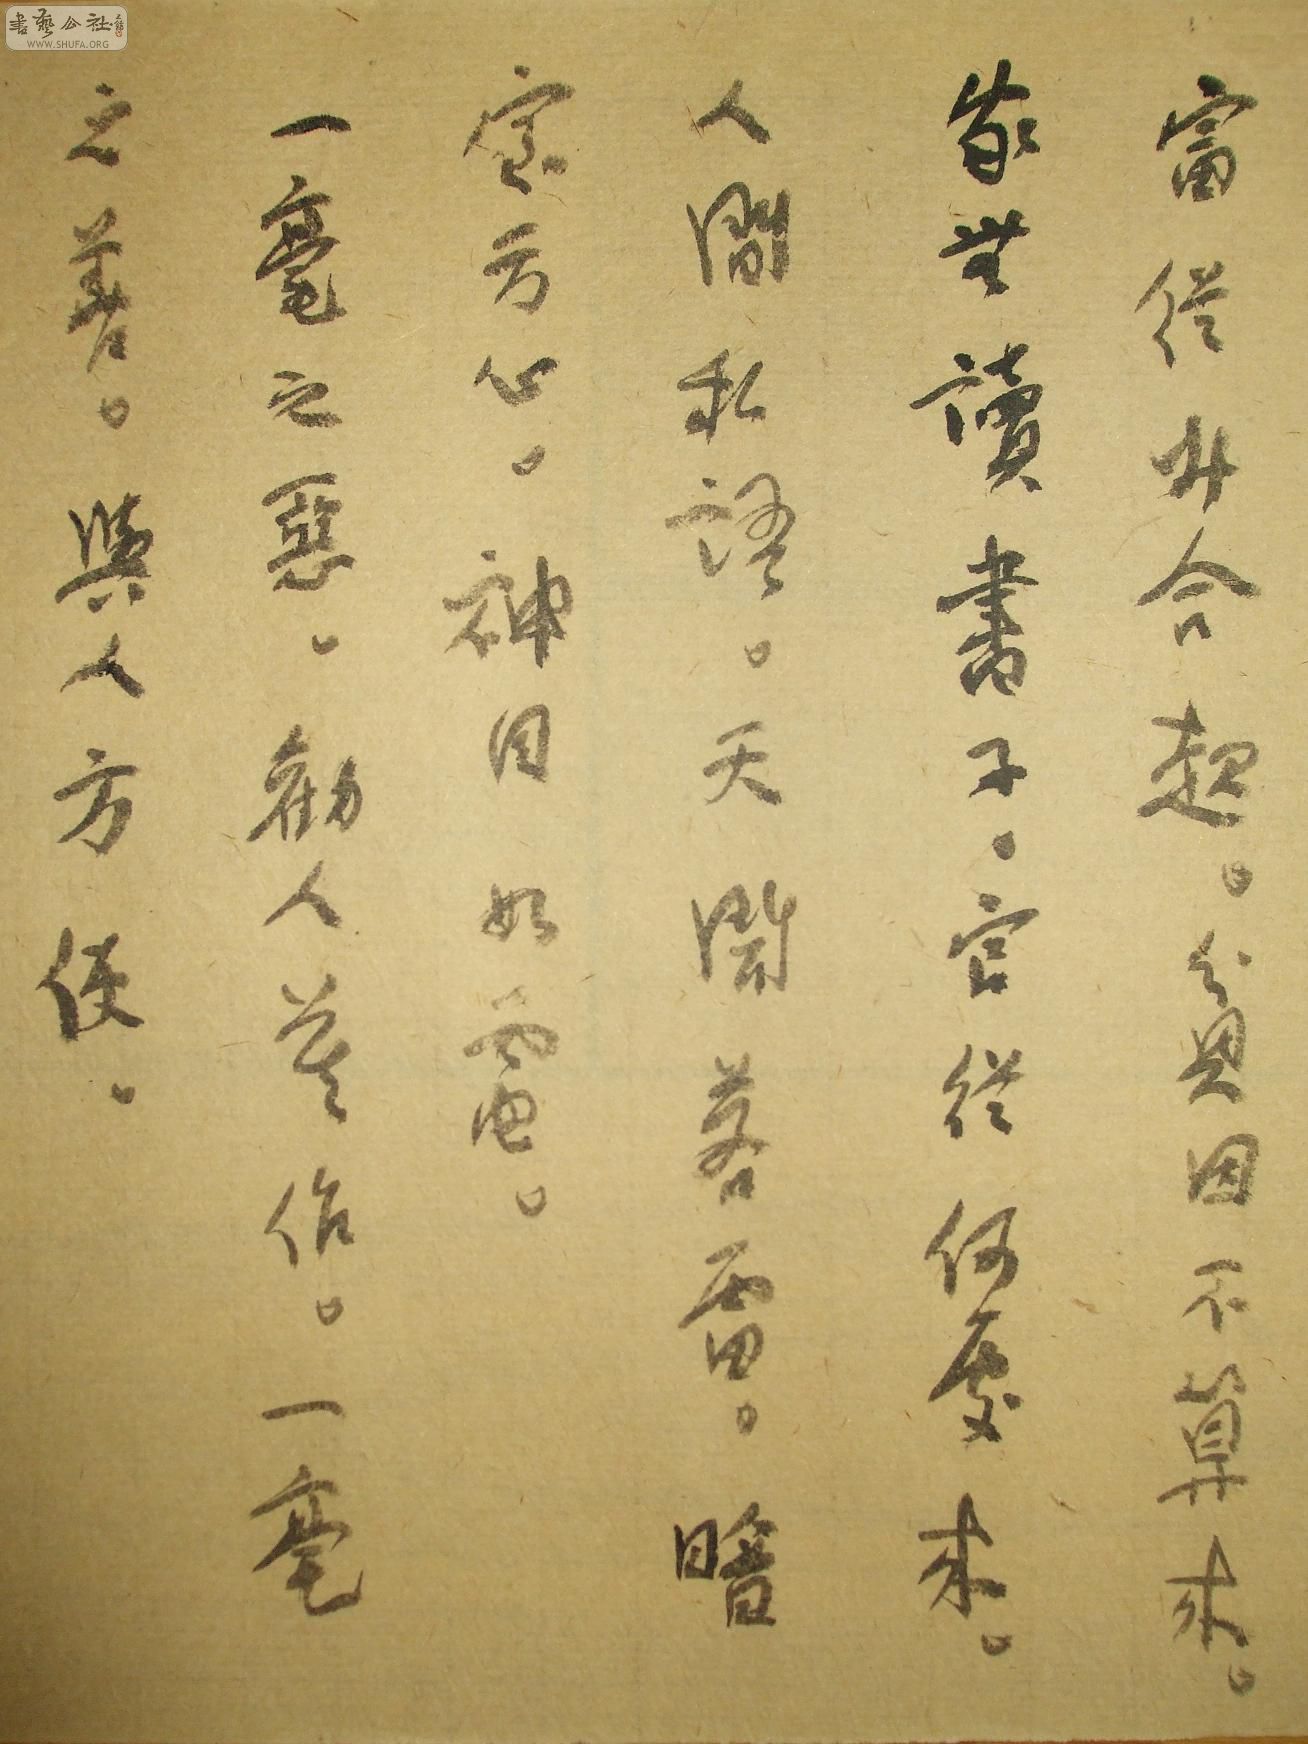 富從升合起。貧因不算來。
家無讀書子。官從何處來。
人間私語。天聞若雷。暗
室方心。神目如電。
一毫之惡。勸人莫作。一毫
之善。與人方便。
書藝公社
WWW.SHUFA.ORG